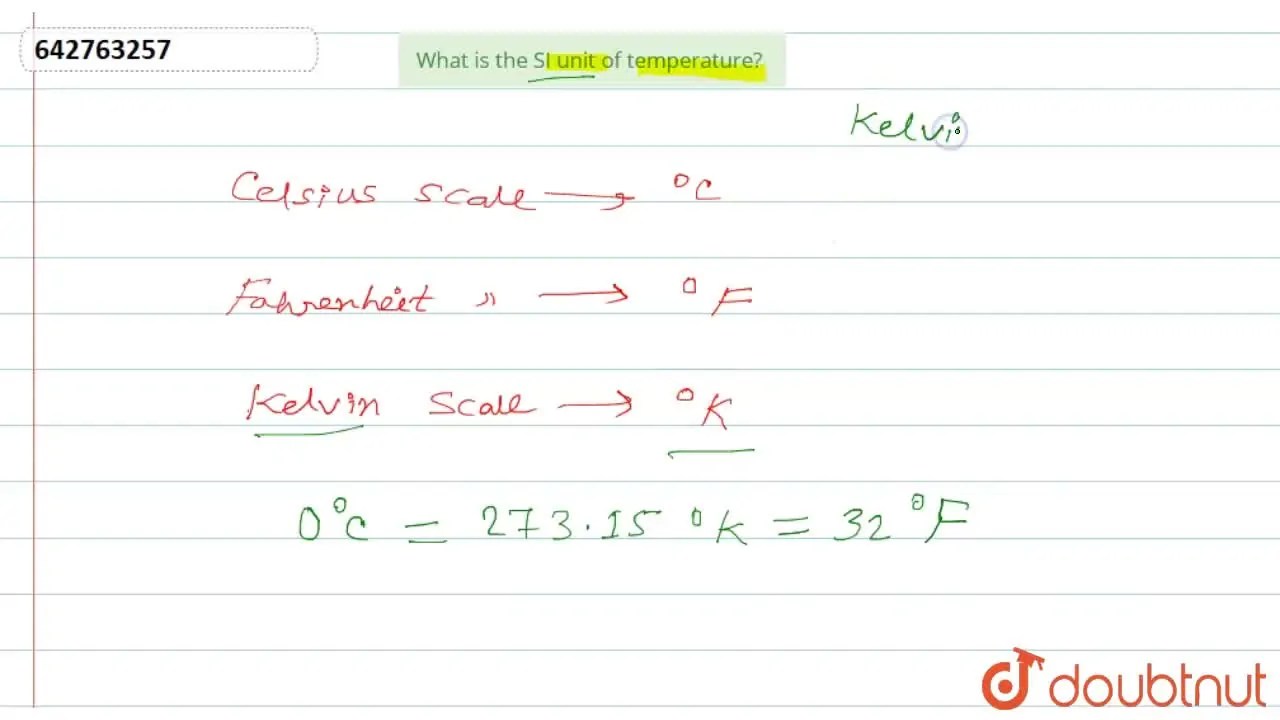 642763257
What is the SI unit of temperature?
Kelvi
Celsius scale → °C
Fahrenheit " → °F
Kelvin scale → °K
0°C = 273.15 °K = 32 °F
doubtnut